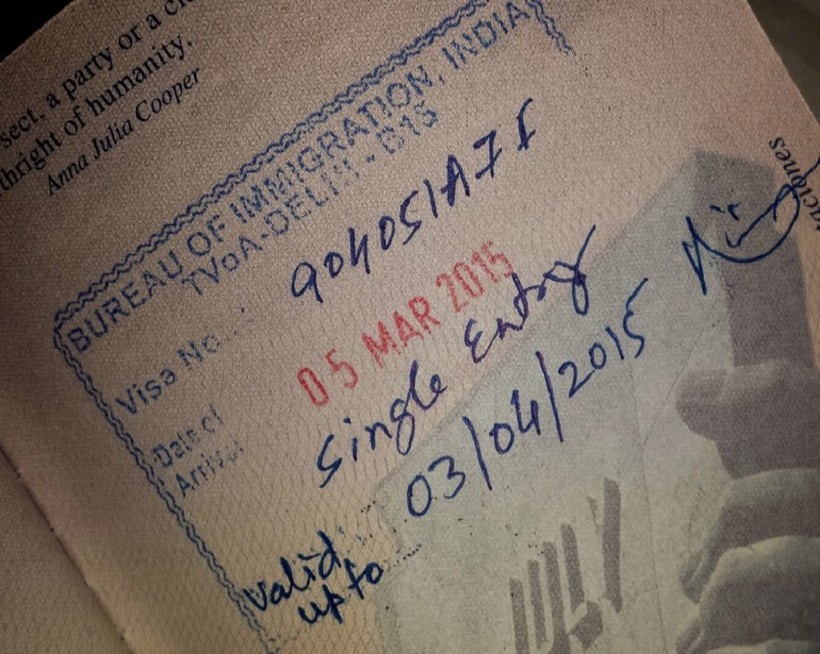 sect, a party or a
thright of humanity.
Anna Julia Cooper
BUREAU OF IMMIGRATION, INDIA
TVoA-DELHI - B16
Visa No.
05 MAR 2015
Date of
Arrival
Single Entry
valid
upto
03/04/2015
JULY